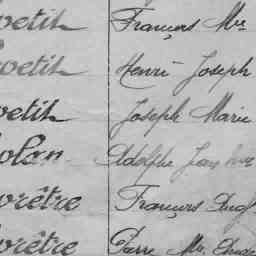 oetit François Mie
oetit Henri Joseph
oetit Joseph Marie
olan Adolphe Jean
orêtre François
orêtre Pierre